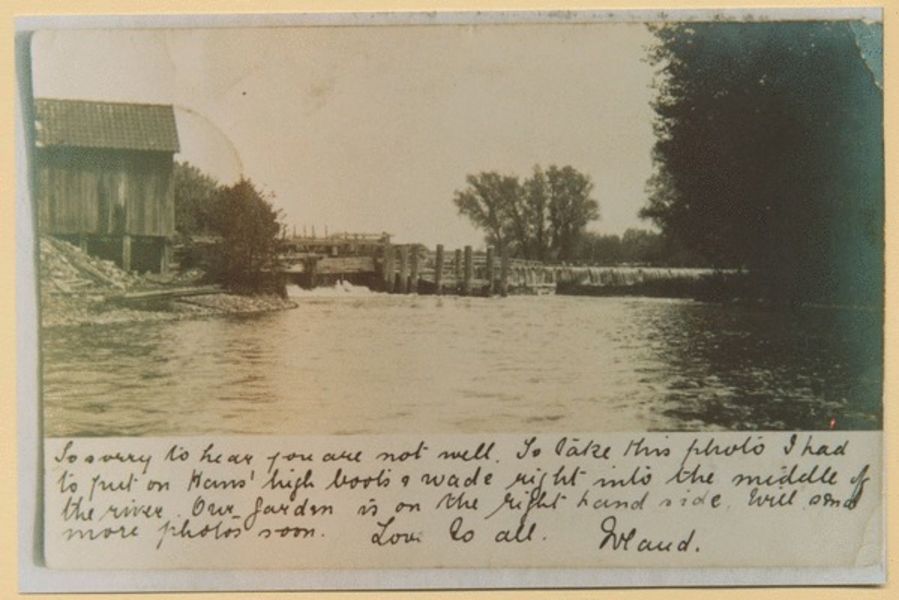 So sorry to hear you are not well. To take this photo I had
to put on Hans' high boots & wade right into the middle of
the river. Our garden is on the right hand side. Will send
more photos soon. Love to all. Maud.